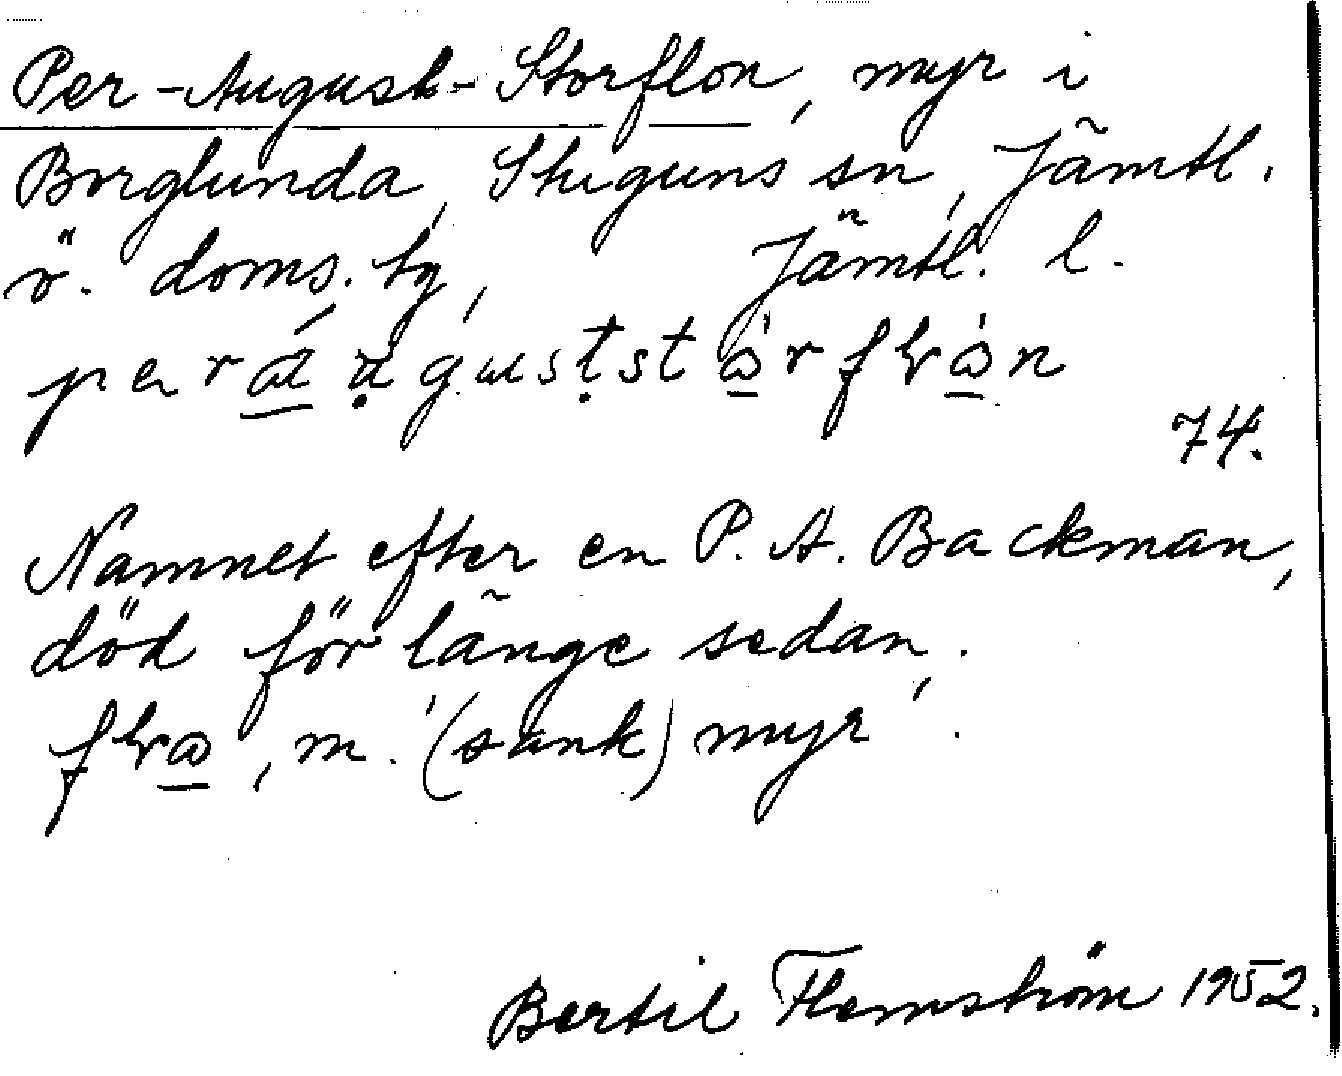 Per-August-Storflon, myr i
Borglunda, Stuguns sn, Jämtl.
ö. doms. tg, Jämtl. l.
74.
Namnet efter en P. A. Backman,
död för länge sedan.
m. (sank) myr.
Bertil Flemström 1952.